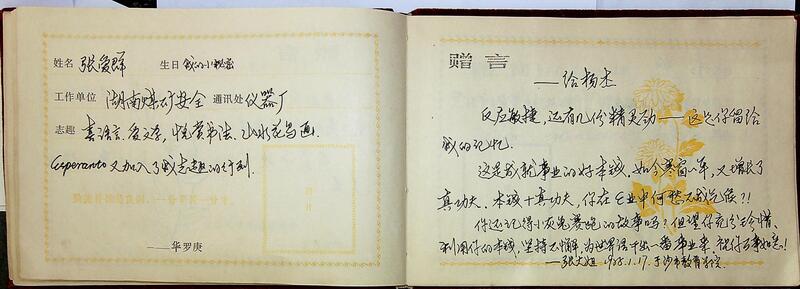 姓名 张爱群 生日 我的小秘密
工作单位 湖南煤矿安全 通讯处 仪器厂
志趣 喜语言、爱文学、悦赏书法、山水花鸟画。
Esperanto 又加入了我志趣的行列.
——华罗庚
赠言
——给杨杰
反应敏捷，还有几份精灵劲——这是你留给
我的记忆.
这是成就事业的好本钱，如今寒窗一年，又增长了
真功夫。本钱＋真功夫，你在E业中何愁不成气候?!
你还记得小灰兔赛跑的故事吗？但望你充分
利用你的本钱，坚持不懈，为世界语干出一番事业来 祝你万事如意!
——张大姐 1988.1.17.于沙市教育学院